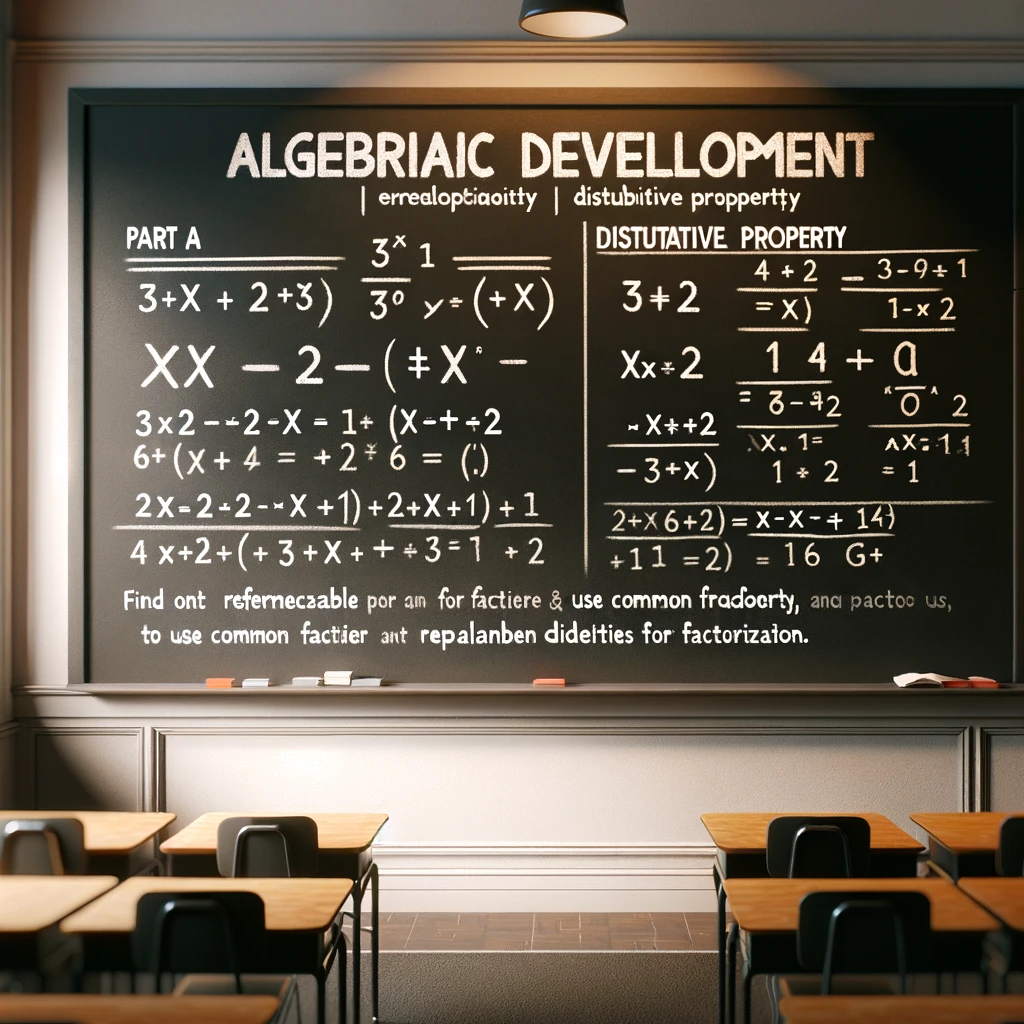 ALGEBRIAIC DEVELLOPMENT
| errealoptiaoitty | distubiitive propperrty
PART A
3ˣ 1
3+X + 2 +3)
3⁰ y÷(+X)
XX – 2 – (‡X" –
3x2 -÷2-X = 1÷ (X-+÷2
6+(X+4 = +2÷6 = (')
2X=2÷2--X +1)+2+X+1)+1
4 x+2+(+3+X++÷3=1 +2
DISTUTATIVE PROPERTY
4+2
3-9÷1
3+2
= X)
1-x 2
Xx÷2
1 4 + a
-X++2
0 2
-3+x)
1 ÷ 2
= 1
2+x6+2) = x-x-+ 14)
+11 =2) = 16 G+
Find ont referneczable por am for factiere & use common fradoerty, and pactoo us,
to use common factiier ant repalanben didelties for factorizaton.